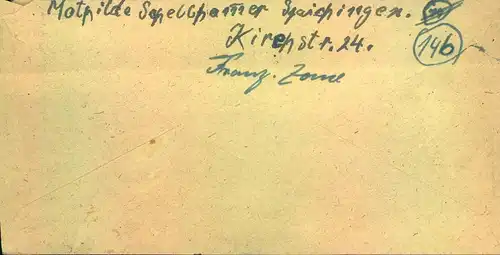 Mathilde Schellhamer Spaichingen.
Kirchstr. 24. 14b
Franz. Zone